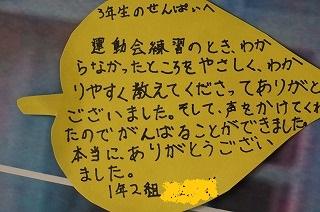 3年生のせんぱいへ
運動会練習のとき、わか
らなかったところをやさしく、わか
りやすく教えてくださってありがと
ございました。そして、声をかけてくれ
たのでがんばることができました。
本当に、ありがとうござい
ました。
1年2組